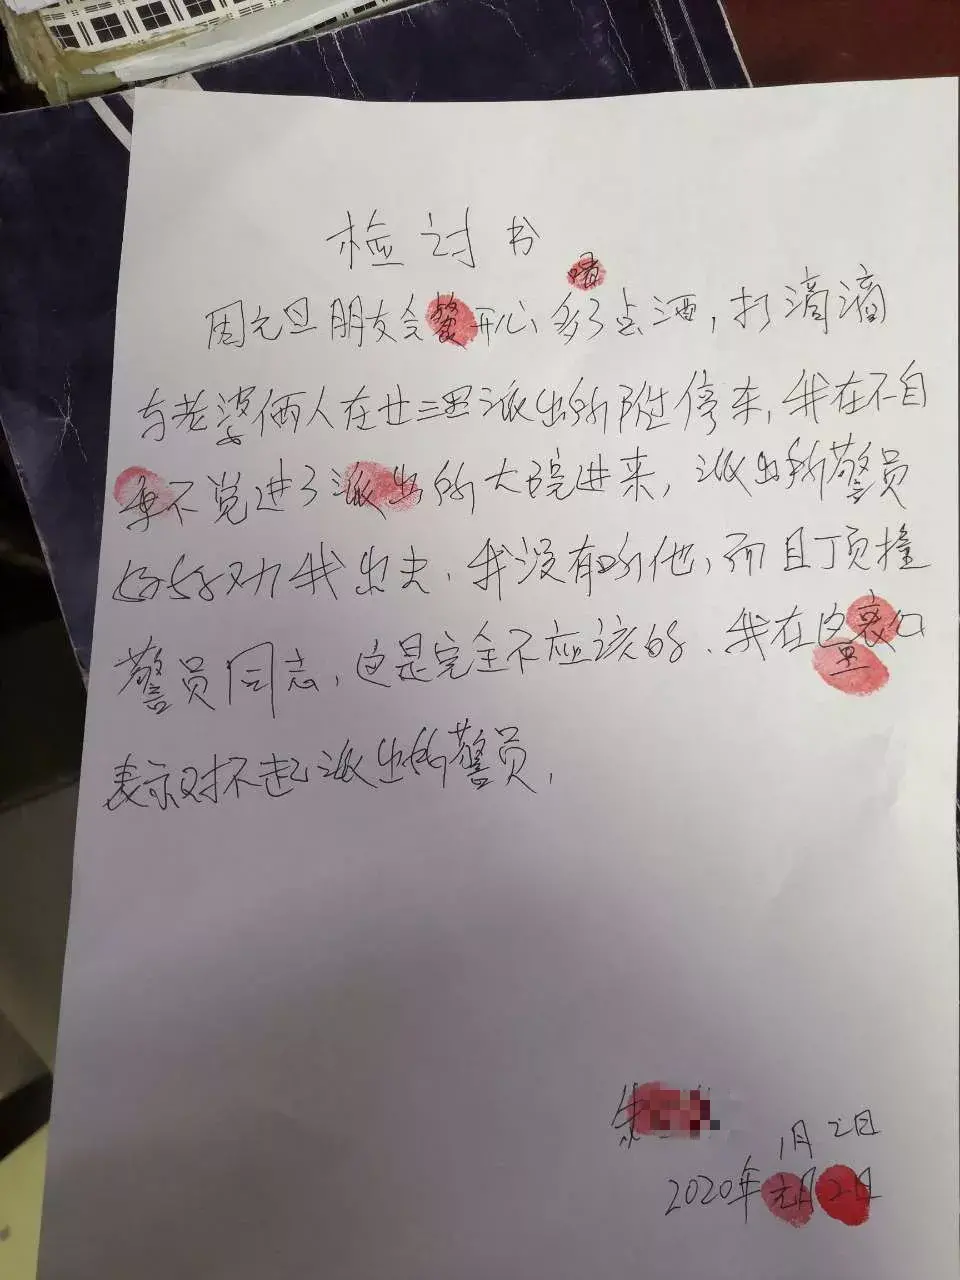 检讨书
因元旦朋友会餐开心、多喝了点酒，打滴滴
与老婆俩人在廿三里派出所附近停车，我在不自
不觉进了派出所大院进来，派出所警员
好好劝我出去、我没有听他，而且顶撞
警员同志，这是完全不应该的、我在这里衷心
表示对不起派出所警员，
朱
1月2日
2020年元月2日